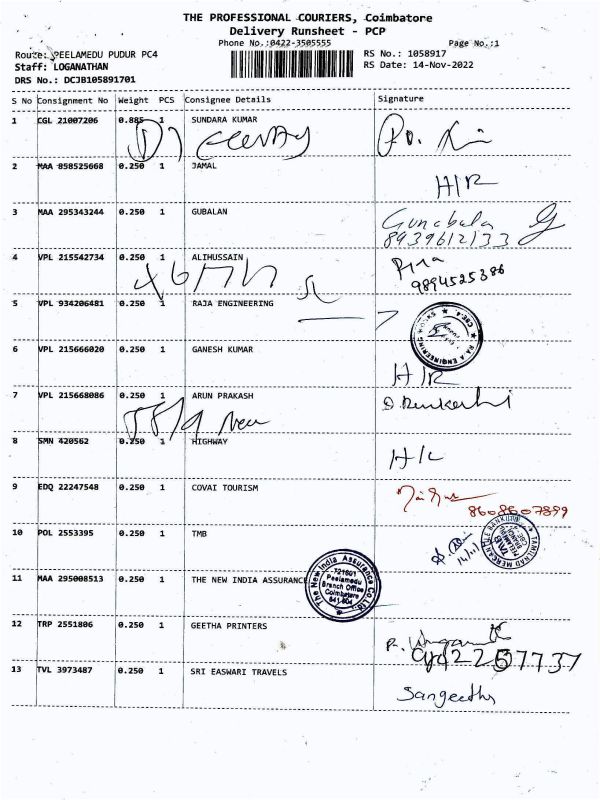 THE PROFESSIONAL COURIERS, Coimbatore
Delivery Runsheet - PCP
Phone No.:0422-3505555 Page No.:1
Route: PEELAMEDU PUDUR PC4 RS No.: 1058917
Staff: LOGANATHAN RS Date: 14-Nov-2022
DRS No.: DCJB105891701
S No Consignment No Weight PCS Consignee Details Signature
1 CGL 21007206 0.885 1 SUNDARA KUMAR
2 MAA 858525668 0.250 1 JAMAL
H/R
3 MAA 295343244 0.250 1 GUBALAN
Gunabala
8939612133
4 VPL 215542734 0.250 1 ALIHUSSAIN
9894525386
5 VPL 934206481 0.250 1 RAJA ENGINEERING
6 VPL 215666020 0.250 1 GANESH KUMAR
H/R
7 VPL 215668086 0.250 1 ARUN PRAKASH
8 SMN 420562 0.250 1 HIGHWAY
9 EDQ 22247548 0.250 1 COVAI TOURISM
8608607899
10 POL 2553395 0.250 1 TMB
TAMILNAD MERCANTILE BANK
11 MAA 295008513 0.250 1 THE NEW INDIA ASSURANCE
The New India Assurance Co Ltd
721601
Peelamedu
Branch Office
Coimbatore
641 004
12 TRP 2551806 0.250 1 GEETHA PRINTERS
13 TVL 3973487 0.250 1 SRI EASWARI TRAVELS
Sangeetha